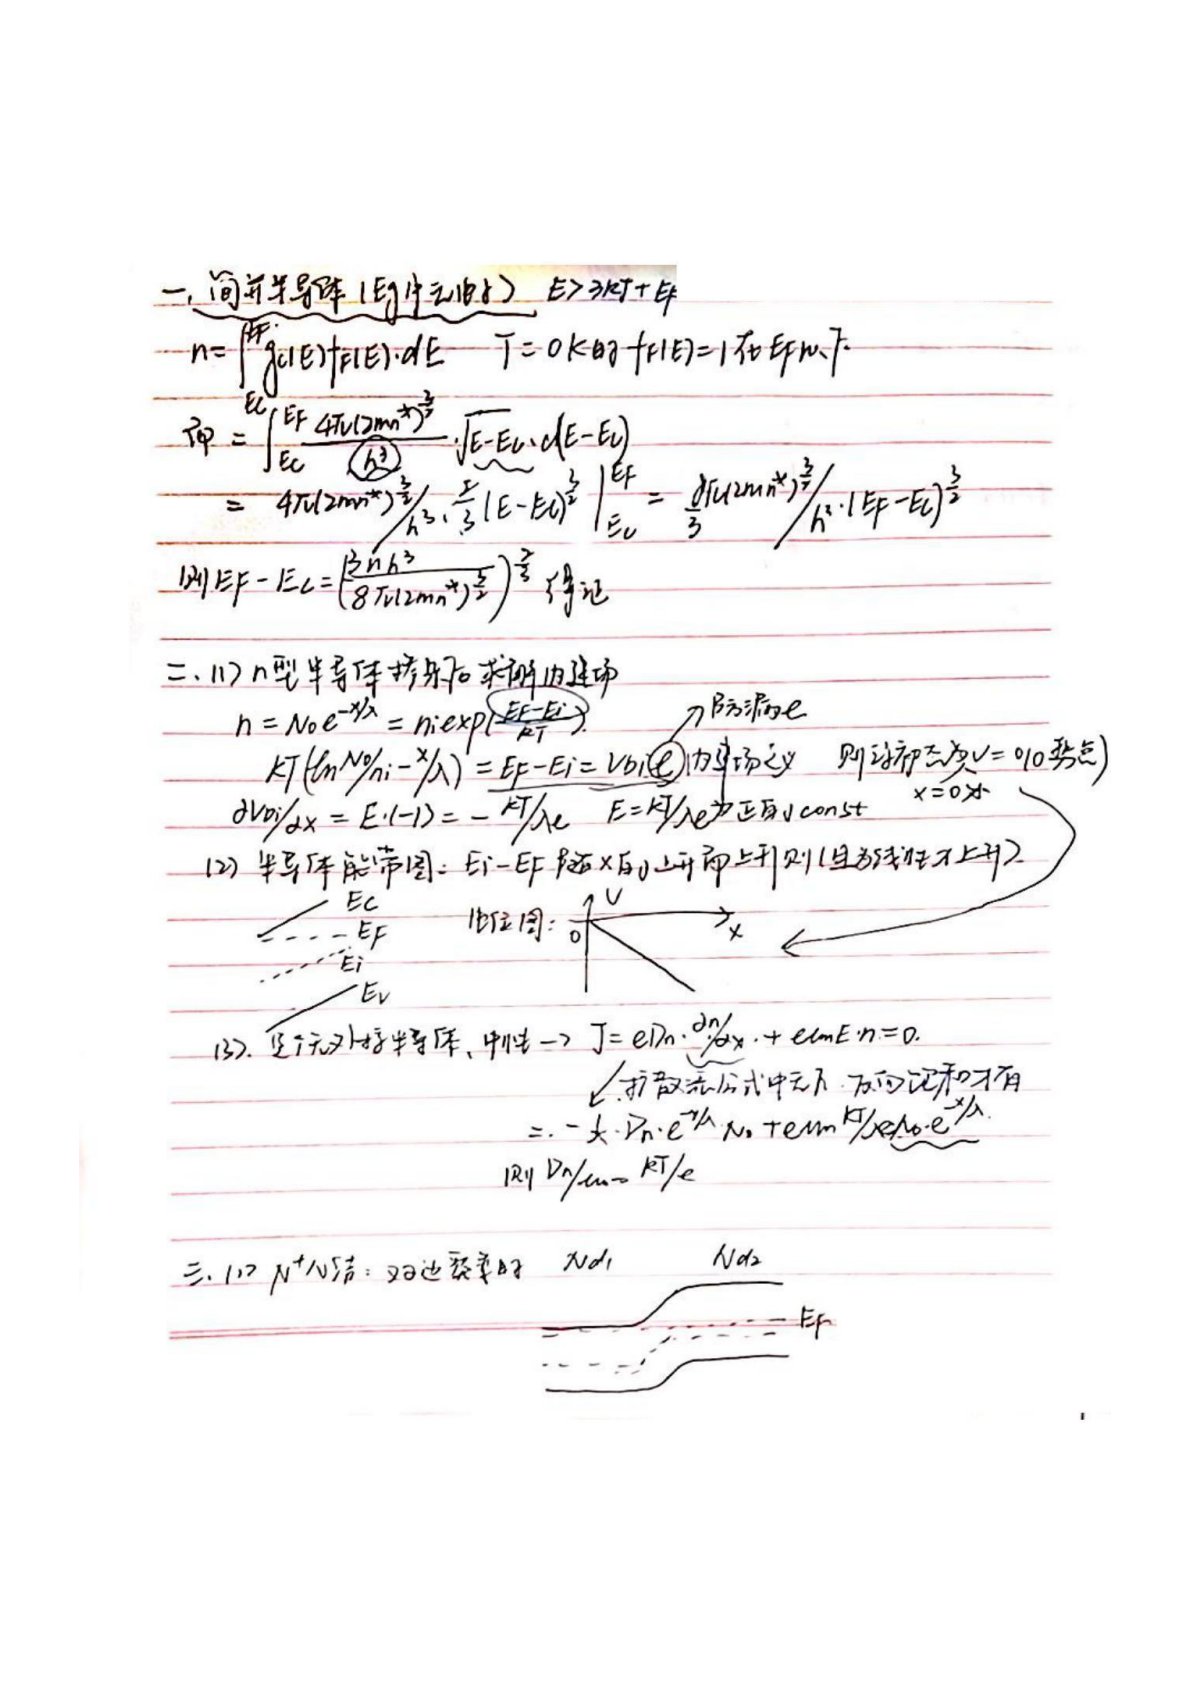 一、简并半导体(Eg中无电子) E>3kT+EF
n=∫_{Ec}^{EF} gc(E)fF(E)·dE T=0K时 fF(E)=1 在EF以下
即 = ∫_{Ec}^{EF} 4π(2mn*)^{3/2}/h³ ·√(E-Ec)·d(E-Ec)
= 4π(2mn*)^{3/2}/h³·2/3(E-Ec)^{3/2} |_{Ec}^{EF} = 8/3 π(2mn*)^{3/2}/h³·(EF-Ec)^{3/2}
则EF-Ec=(3nh³/8π(2mn*)^{3/2})^{2/3} 得证
二、(1) n型半导体掺杂后求解内建场
n=N₀e^{-x/λ}=ni exp(EF-Ei/kT). 防漏e
kT(ln N₀/ni - x/λ)=EF-Ei=Vbi e 内建场定义 则 V=0(0势点)
x=0处
∂Vbi/∂x=E·(-1)=-kT/λe E=kT/λe 为正向const
(2) 半导体能带图: Ei-EF 随x 上升而上升则(且为线性才上升)
Ec
EF
Ei
Ev
电位图: V 0 x
(3). 无外接半导体、中性→ J=eDn·∂n/∂x+eμnE·n=0.
扩散流公式中无 才有
=-1/λ·Dn·e^{-x/λ}·N₀+eμn kT/λe N₀·e^{-x/λ}.
则 Dn/μn=kT/e
三、(1) N⁺N结: Nd₁ Nd₂
EF